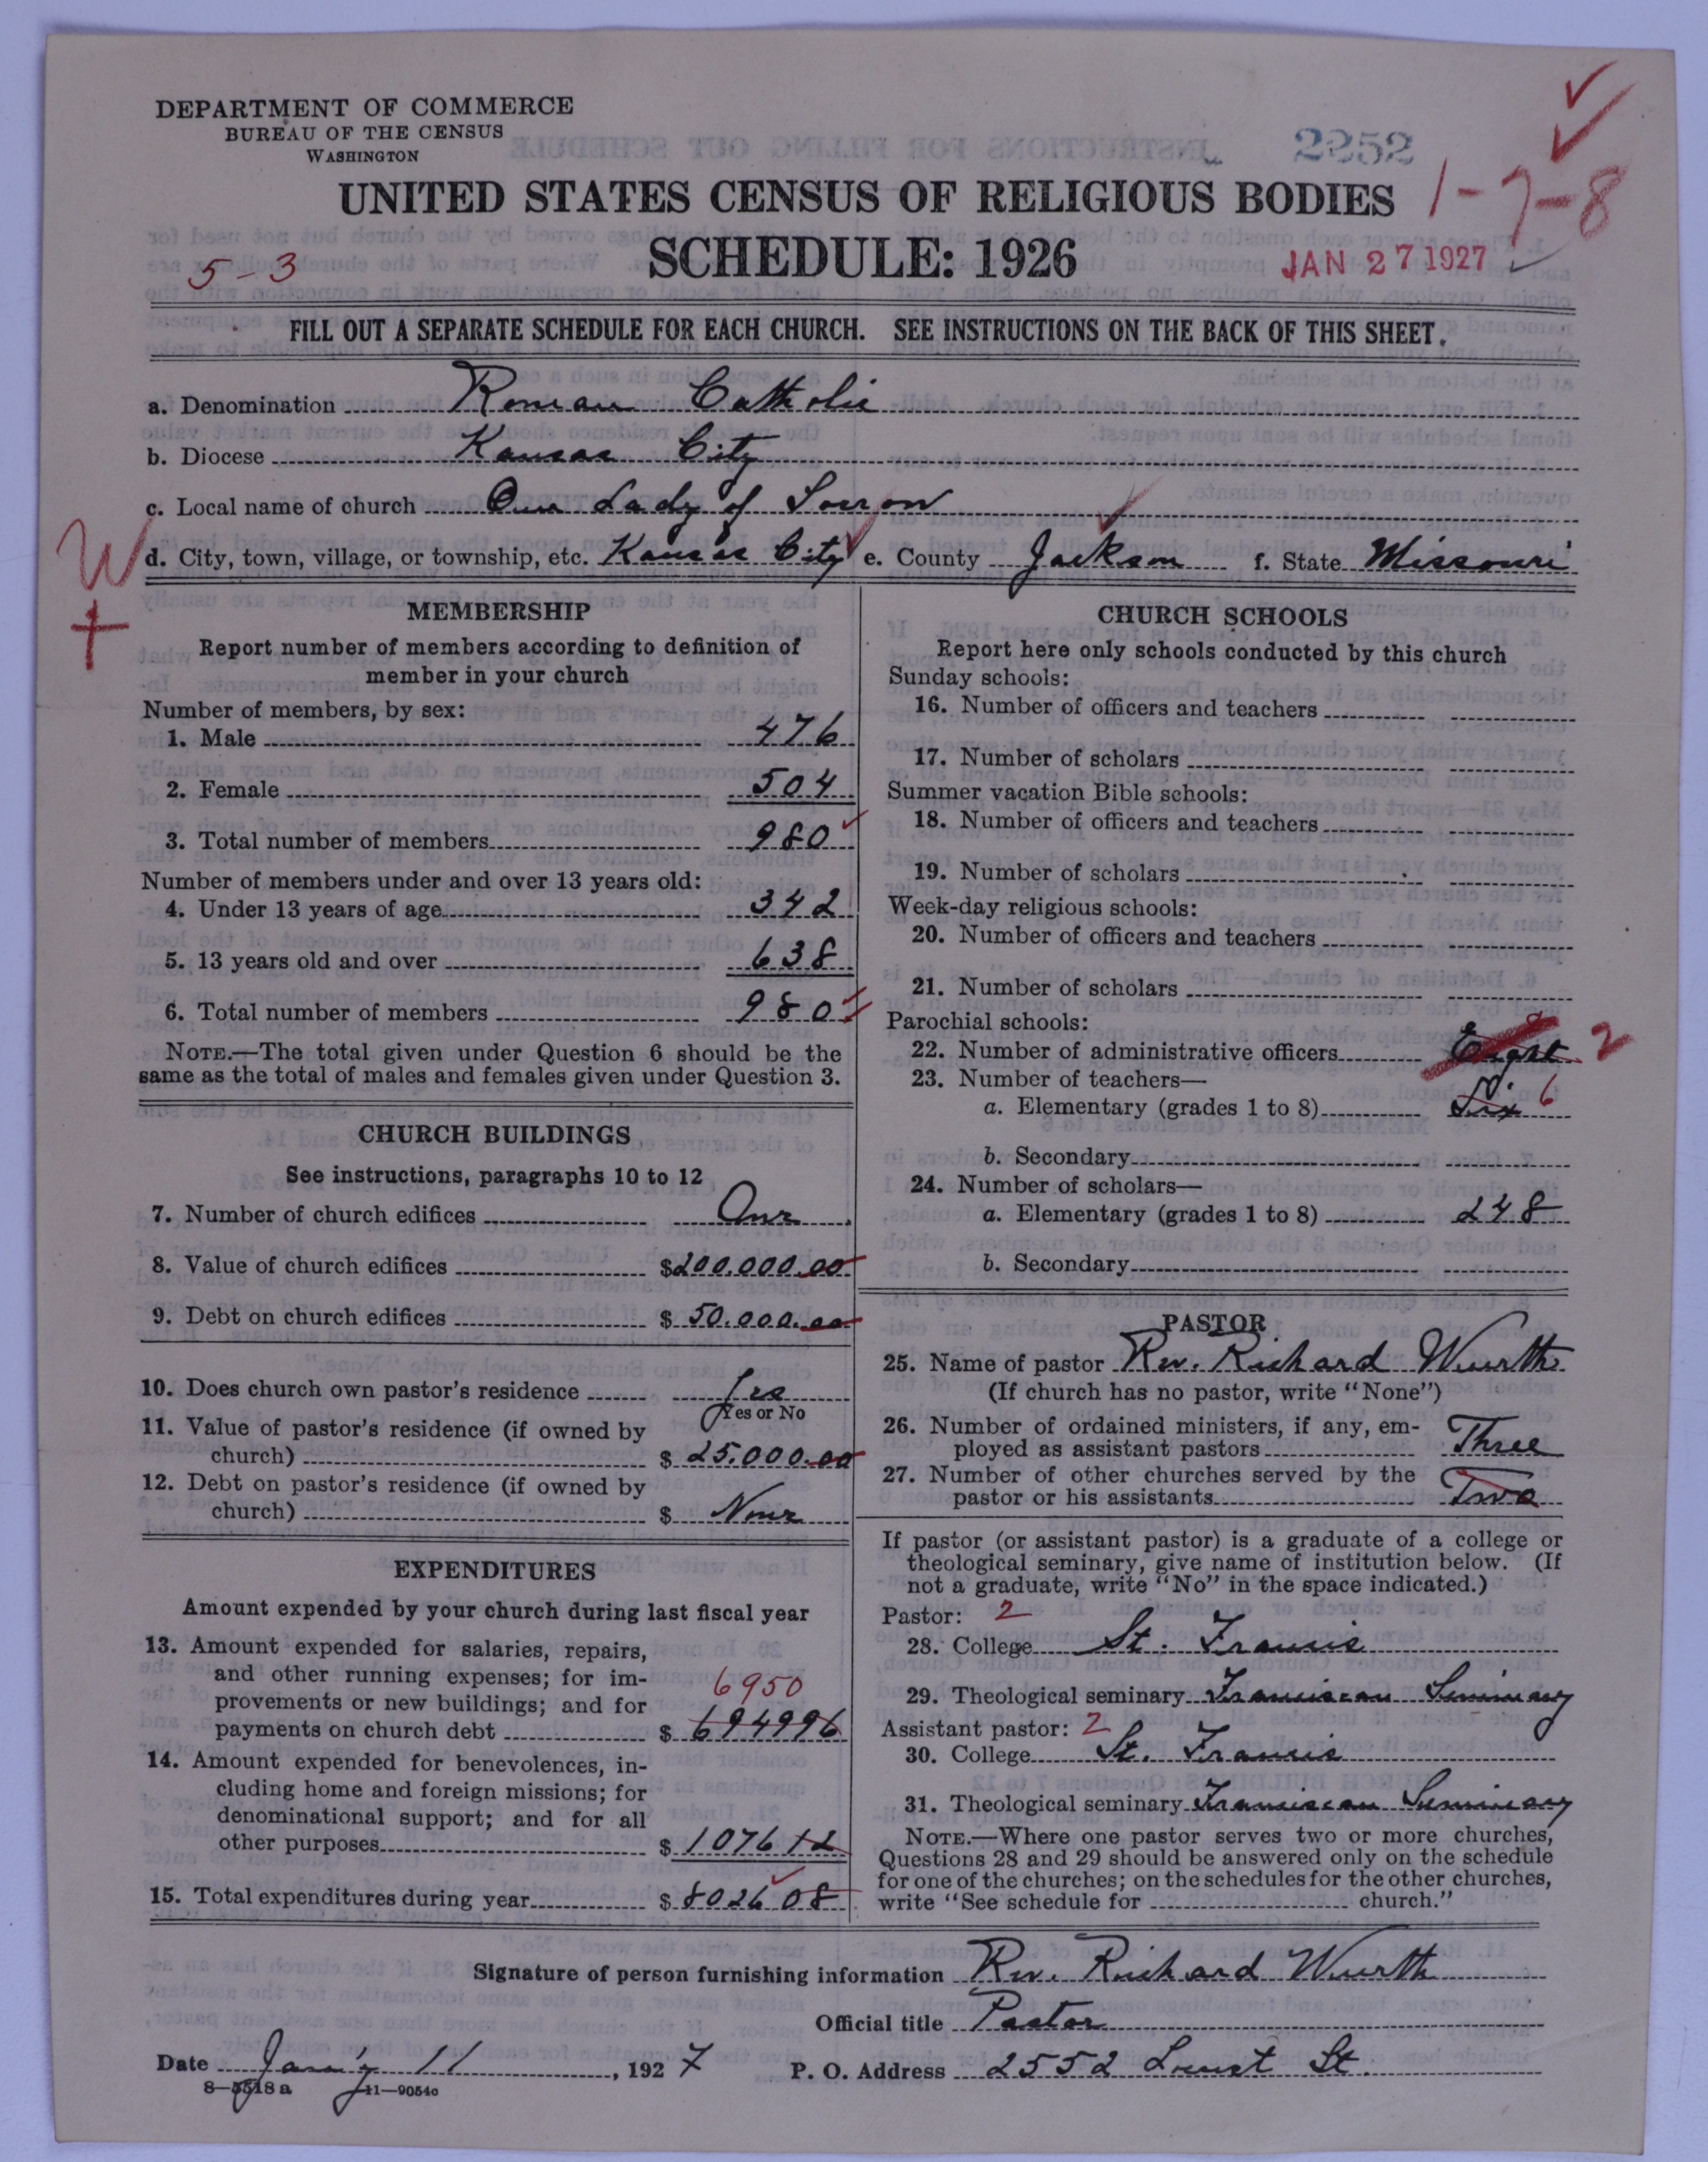 DEPARTMENT OF COMMERCE
BUREAU OF THE CENSUS
WASHINGTON
2252
UNITED STATES CENSUS OF RELIGIOUS BODIES
1-7-8
SCHEDULE: 1926
5-3
JAN 27 1927
FILL OUT A SEPARATE SCHEDULE FOR EACH CHURCH. SEE INSTRUCTIONS ON THE BACK OF THIS SHEET.
a. Denomination Roman Catholic
b. Diocese Kansas City
c. Local name of church Our Lady of Sorrow
W d. City, town, village, or township, etc. Kansas City e. County Jackson f. State Missouri
MEMBERSHIP
Report number of members according to definition of
member in your church
Number of members, by sex:
1. Male 476
2. Female 504
3. Total number of members 980
Number of members under and over 13 years old:
4. Under 13 years of age 342
5. 13 years old and over 638
6. Total number of members 980
NOTE.—The total given under Question 6 should be the
same as the total of males and females given under Question 3.
CHURCH BUILDINGS
See instructions, paragraphs 10 to 12
7. Number of church edifices One
8. Value of church edifices $200.000.00
9. Debt on church edifices $ 50.000.00
10. Does church own pastor's residence Yes
Yes or No
11. Value of pastor's residence (if owned by
church) $ 25.000.00
12. Debt on pastor's residence (if owned by
church) $ None
EXPENDITURES
Amount expended by your church during last fiscal year
13. Amount expended for salaries, repairs,
and other running expenses; for im-
provements or new buildings; and for
6950
payments on church debt $ 694996
14. Amount expended for benevolences, in-
cluding home and foreign missions; for
denominational support; and for all
other purposes $ 1076 12
15. Total expenditures during year $ 8026 08
CHURCH SCHOOLS
Report here only schools conducted by this church
Sunday schools:
16. Number of officers and teachers
17. Number of scholars
Summer vacation Bible schools:
18. Number of officers and teachers
19. Number of scholars
Week-day religious schools:
20. Number of officers and teachers
21. Number of scholars
Parochial schools:
22. Number of administrative officers Eight 2
23. Number of teachers—
a. Elementary (grades 1 to 8) Six 6
b. Secondary
24. Number of scholars—
a. Elementary (grades 1 to 8) 248
b. Secondary
PASTOR
25. Name of pastor Rev. Richard Wurth
(If church has no pastor, write "None")
26. Number of ordained ministers, if any, em-
ployed as assistant pastors Three
27. Number of other churches served by the
pastor or his assistants Two
If pastor (or assistant pastor) is a graduate of a college or
theological seminary, give name of institution below. (If
not a graduate, write "No" in the space indicated.)
Pastor: 2
28. College St. Francis
29. Theological seminary Franciscan Seminary
Assistant pastor: 2
30. College St. Francis
31. Theological seminary Franciscan Seminary
NOTE.—Where one pastor serves two or more churches,
Questions 28 and 29 should be answered only on the schedule
for one of the churches; on the schedules for the other churches,
write "See schedule for church."
Signature of person furnishing information Rev. Richard Wurth
Official title Pastor
Date Jan'y 11, 1927 P. O. Address 2552 Locust St.
8—5518a 11—9054c